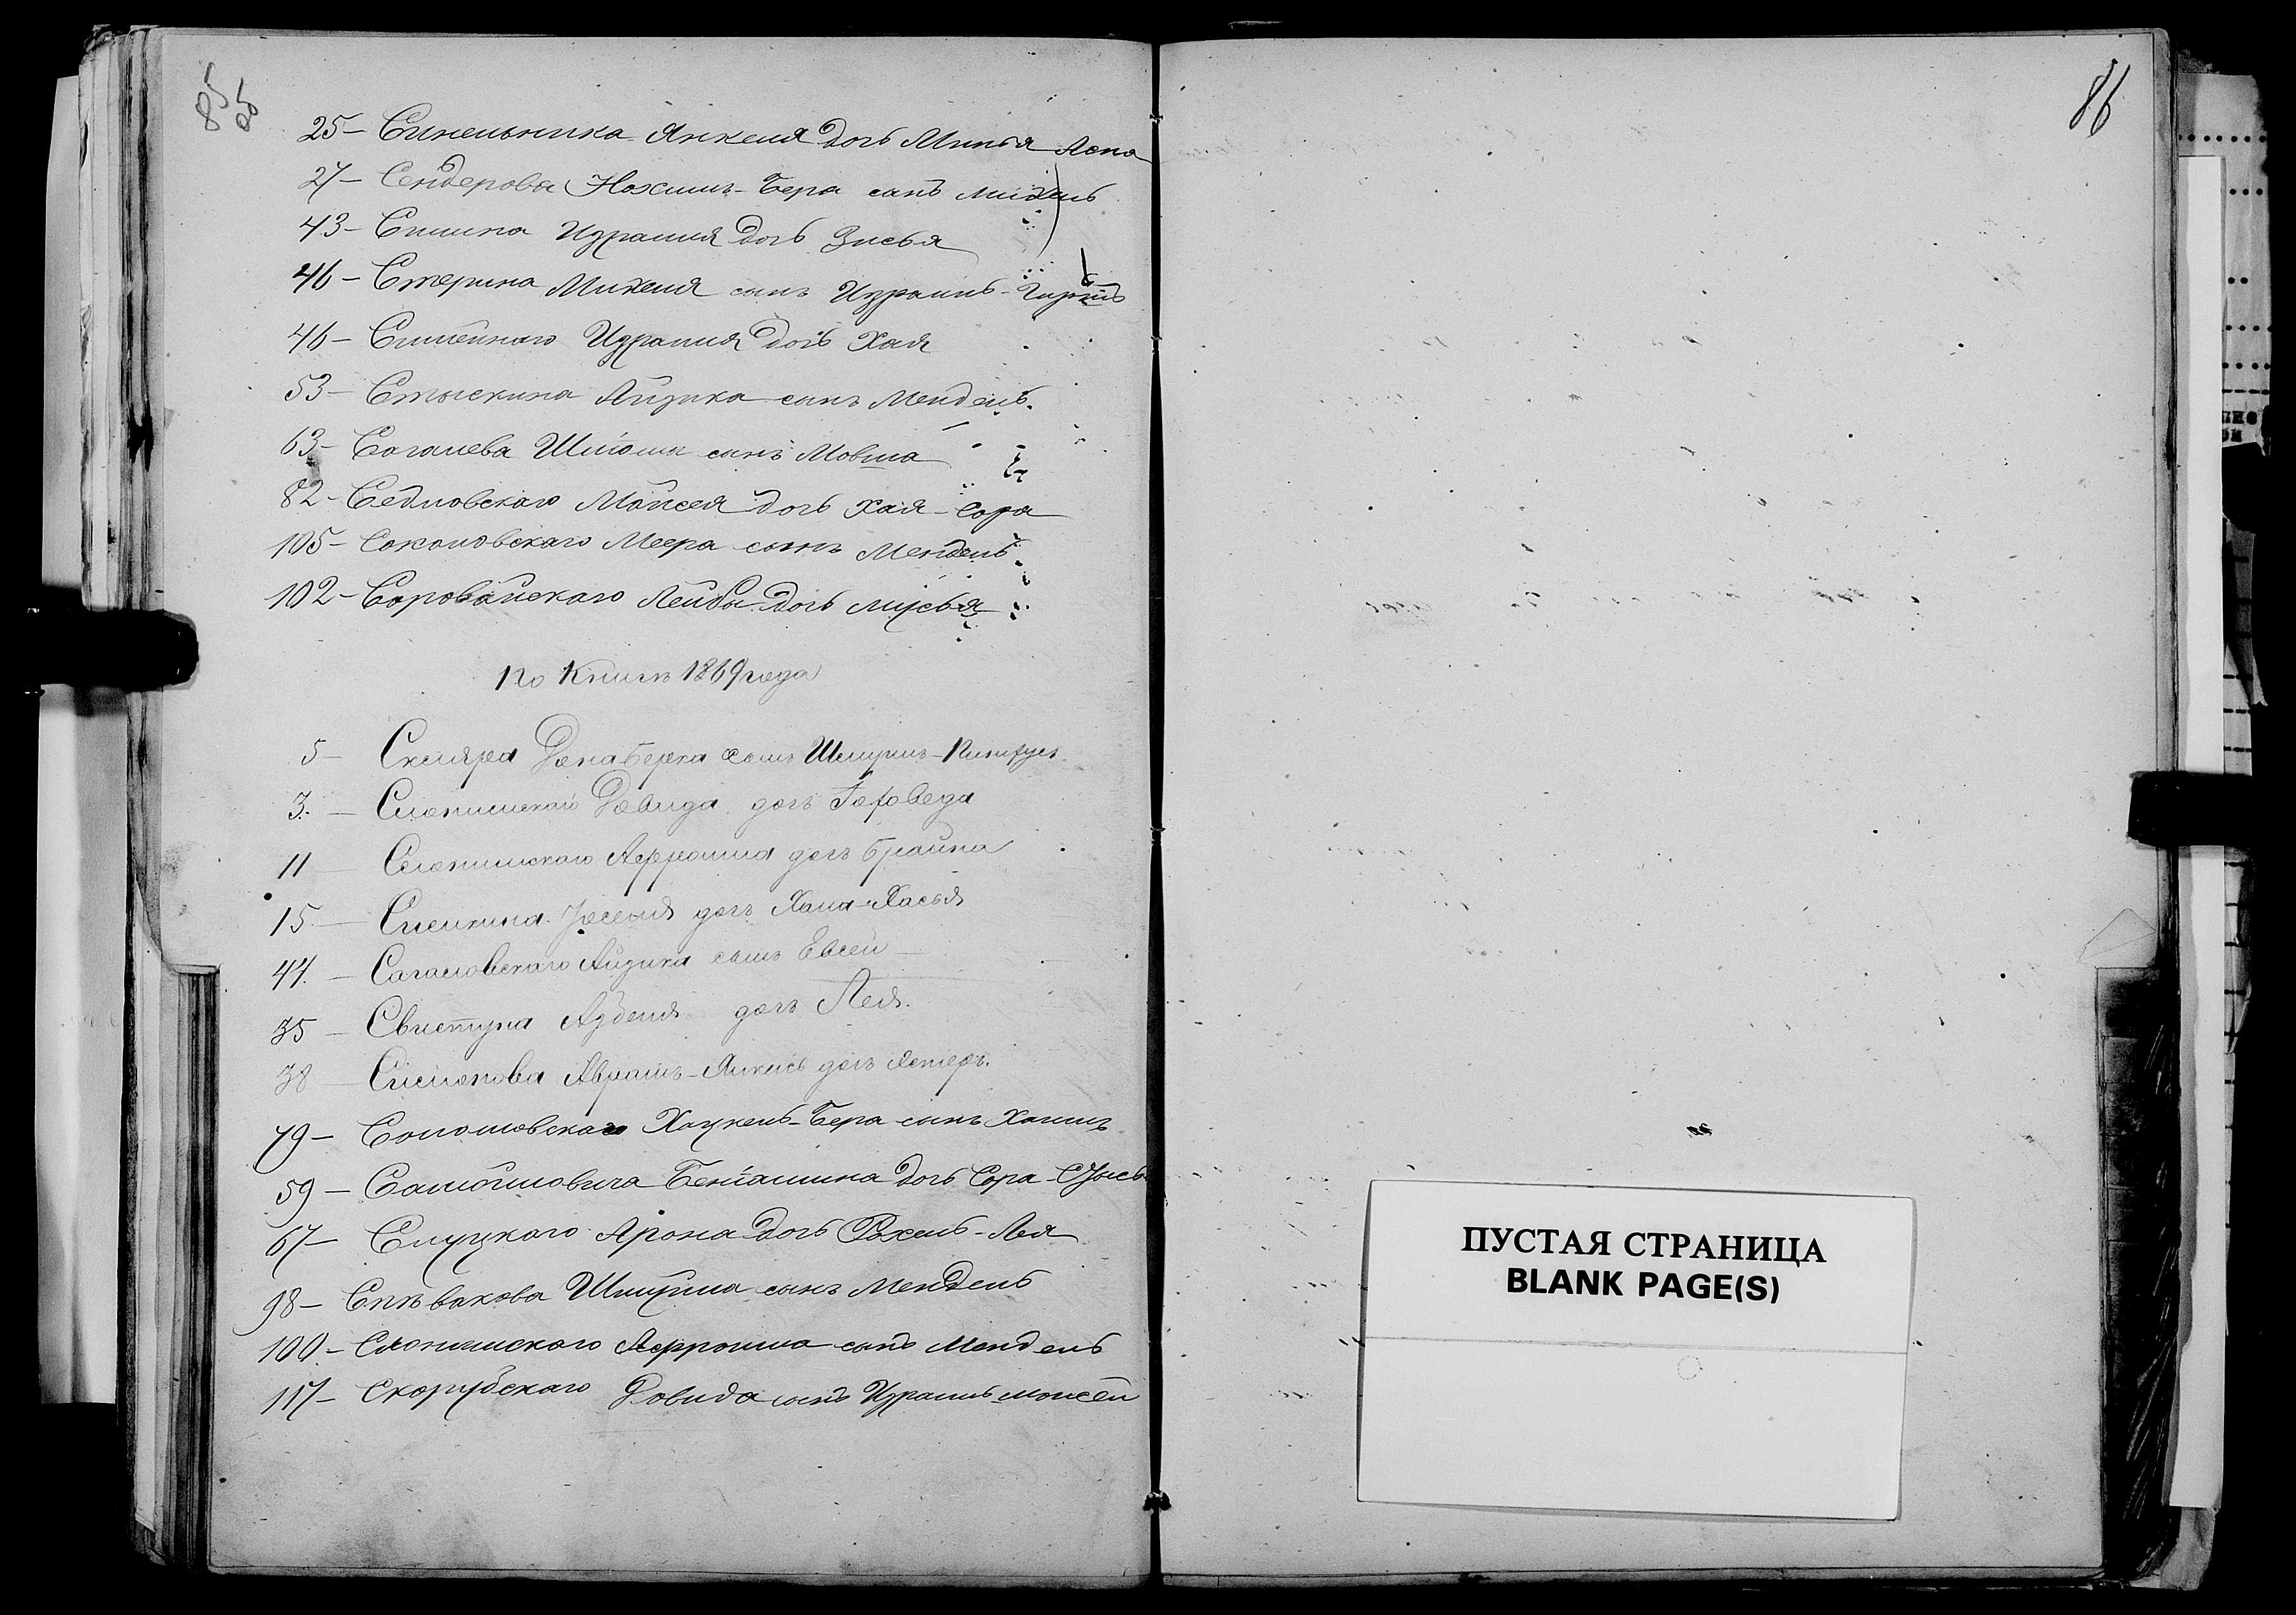 85 об
25 - Синельника Янкеля дочь Минья Лена
27 - Сендерова Нохим-Бера сынъ Михель
43 - Симина Израиля дочь Зисья
46 - Стерина Михеля сынъ Израиль-Гиршъ
46 - Израиля дочь Хая
53 - Стыскина Айзика сынъ Мендель.
63 - Согалева Шлюмы сынъ Мовша
82 - Седловскаго Моисея дочь Хая-Сора
105 - Соколовскаго Меера сынъ Мендель
102 - Саровайскаго Лейбы дочь Мусья
По книгѣ 1869 года
5 - Скляра сынъ Шлиумъ-Пинхусъ
3. - Слонимскаго Давида дочь
11 - Слонимскаго Аффроима дочь Брайна
15 - дочь Хана-Хасья
47. - Сагаловскаго Айзика сынъ Евсей
35 - Свистуна дочь Лея.
38 - Симонова Абрамъ-Янкель дочь Эстеръ.
79 - Соломовскаго Хацкель-Бера сынъ Хаимъ
59 - Самойловича Беніамина дочь Сора-
67 - Слуцкаго Арона дочь Рохель-Лея
98 - Спѣвакова Шлиума сынъ Мендель
100 - Слонимскаго Аффроима сынъ Мендель
117 - Скорубскаго Довида сынъ Израиль-Моисей
86
ПУСТАЯ СТРАНИЦА
BLANK PAGE(S)